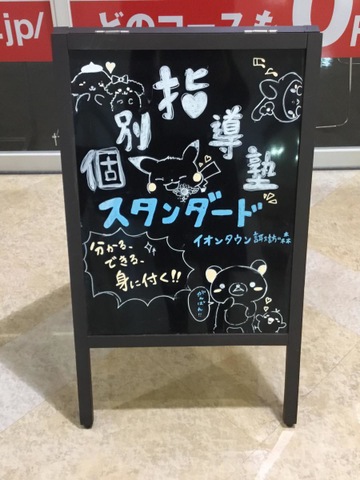 .jp/
どのコースも
個別指導塾
スタンダード
イオンタウン諏訪の森
分かる、
できる、
身に付く!!
がんばれ!!